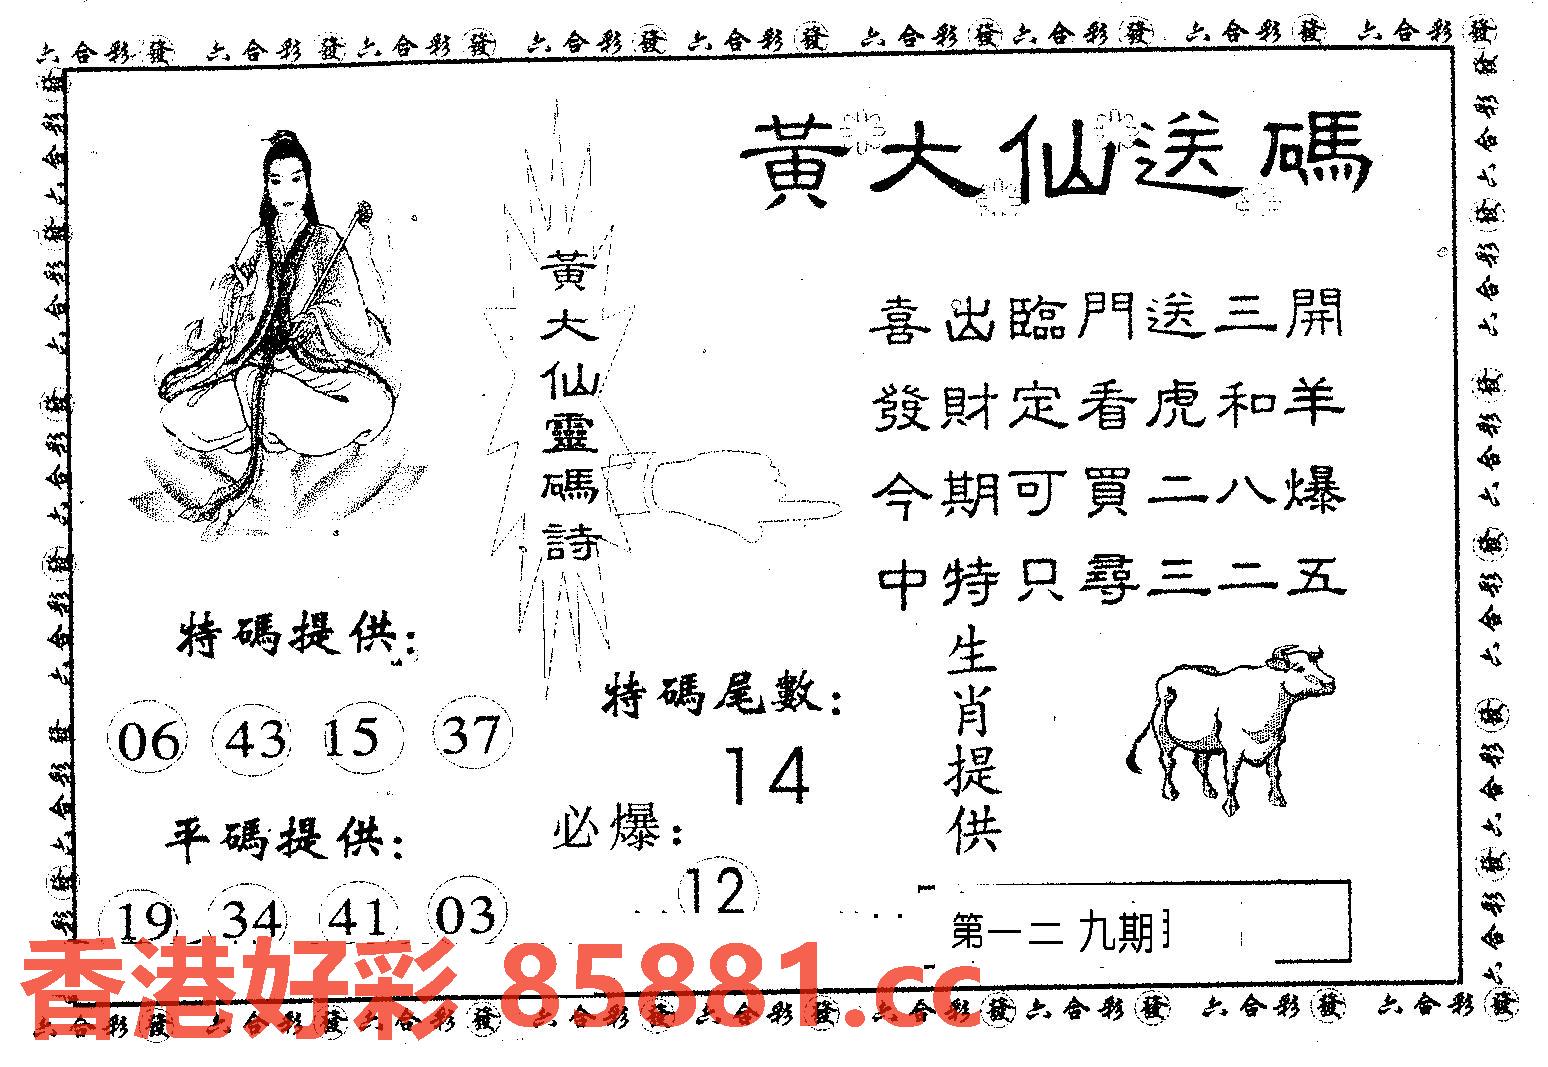 六合彩發 六合彩發 六合彩發 六合彩發 六合彩發 六合彩發 六合彩發 六合彩發 六合彩發
黃大仙送碼
黃大仙靈碼詩
喜出臨門送三開
發財定看虎和羊
今期可買二八爆
中特只尋三二五
特碼提供:
06 43 15 37
平碼提供:
19 34 41 03
特碼尾數:
14
必爆:
12
生肖提供
第一二九期
香港好彩 85881.cc
六合彩發 六合彩發 六合彩發 六合彩發 六合彩發 六合彩發 六合彩發 六合彩發 六合彩發